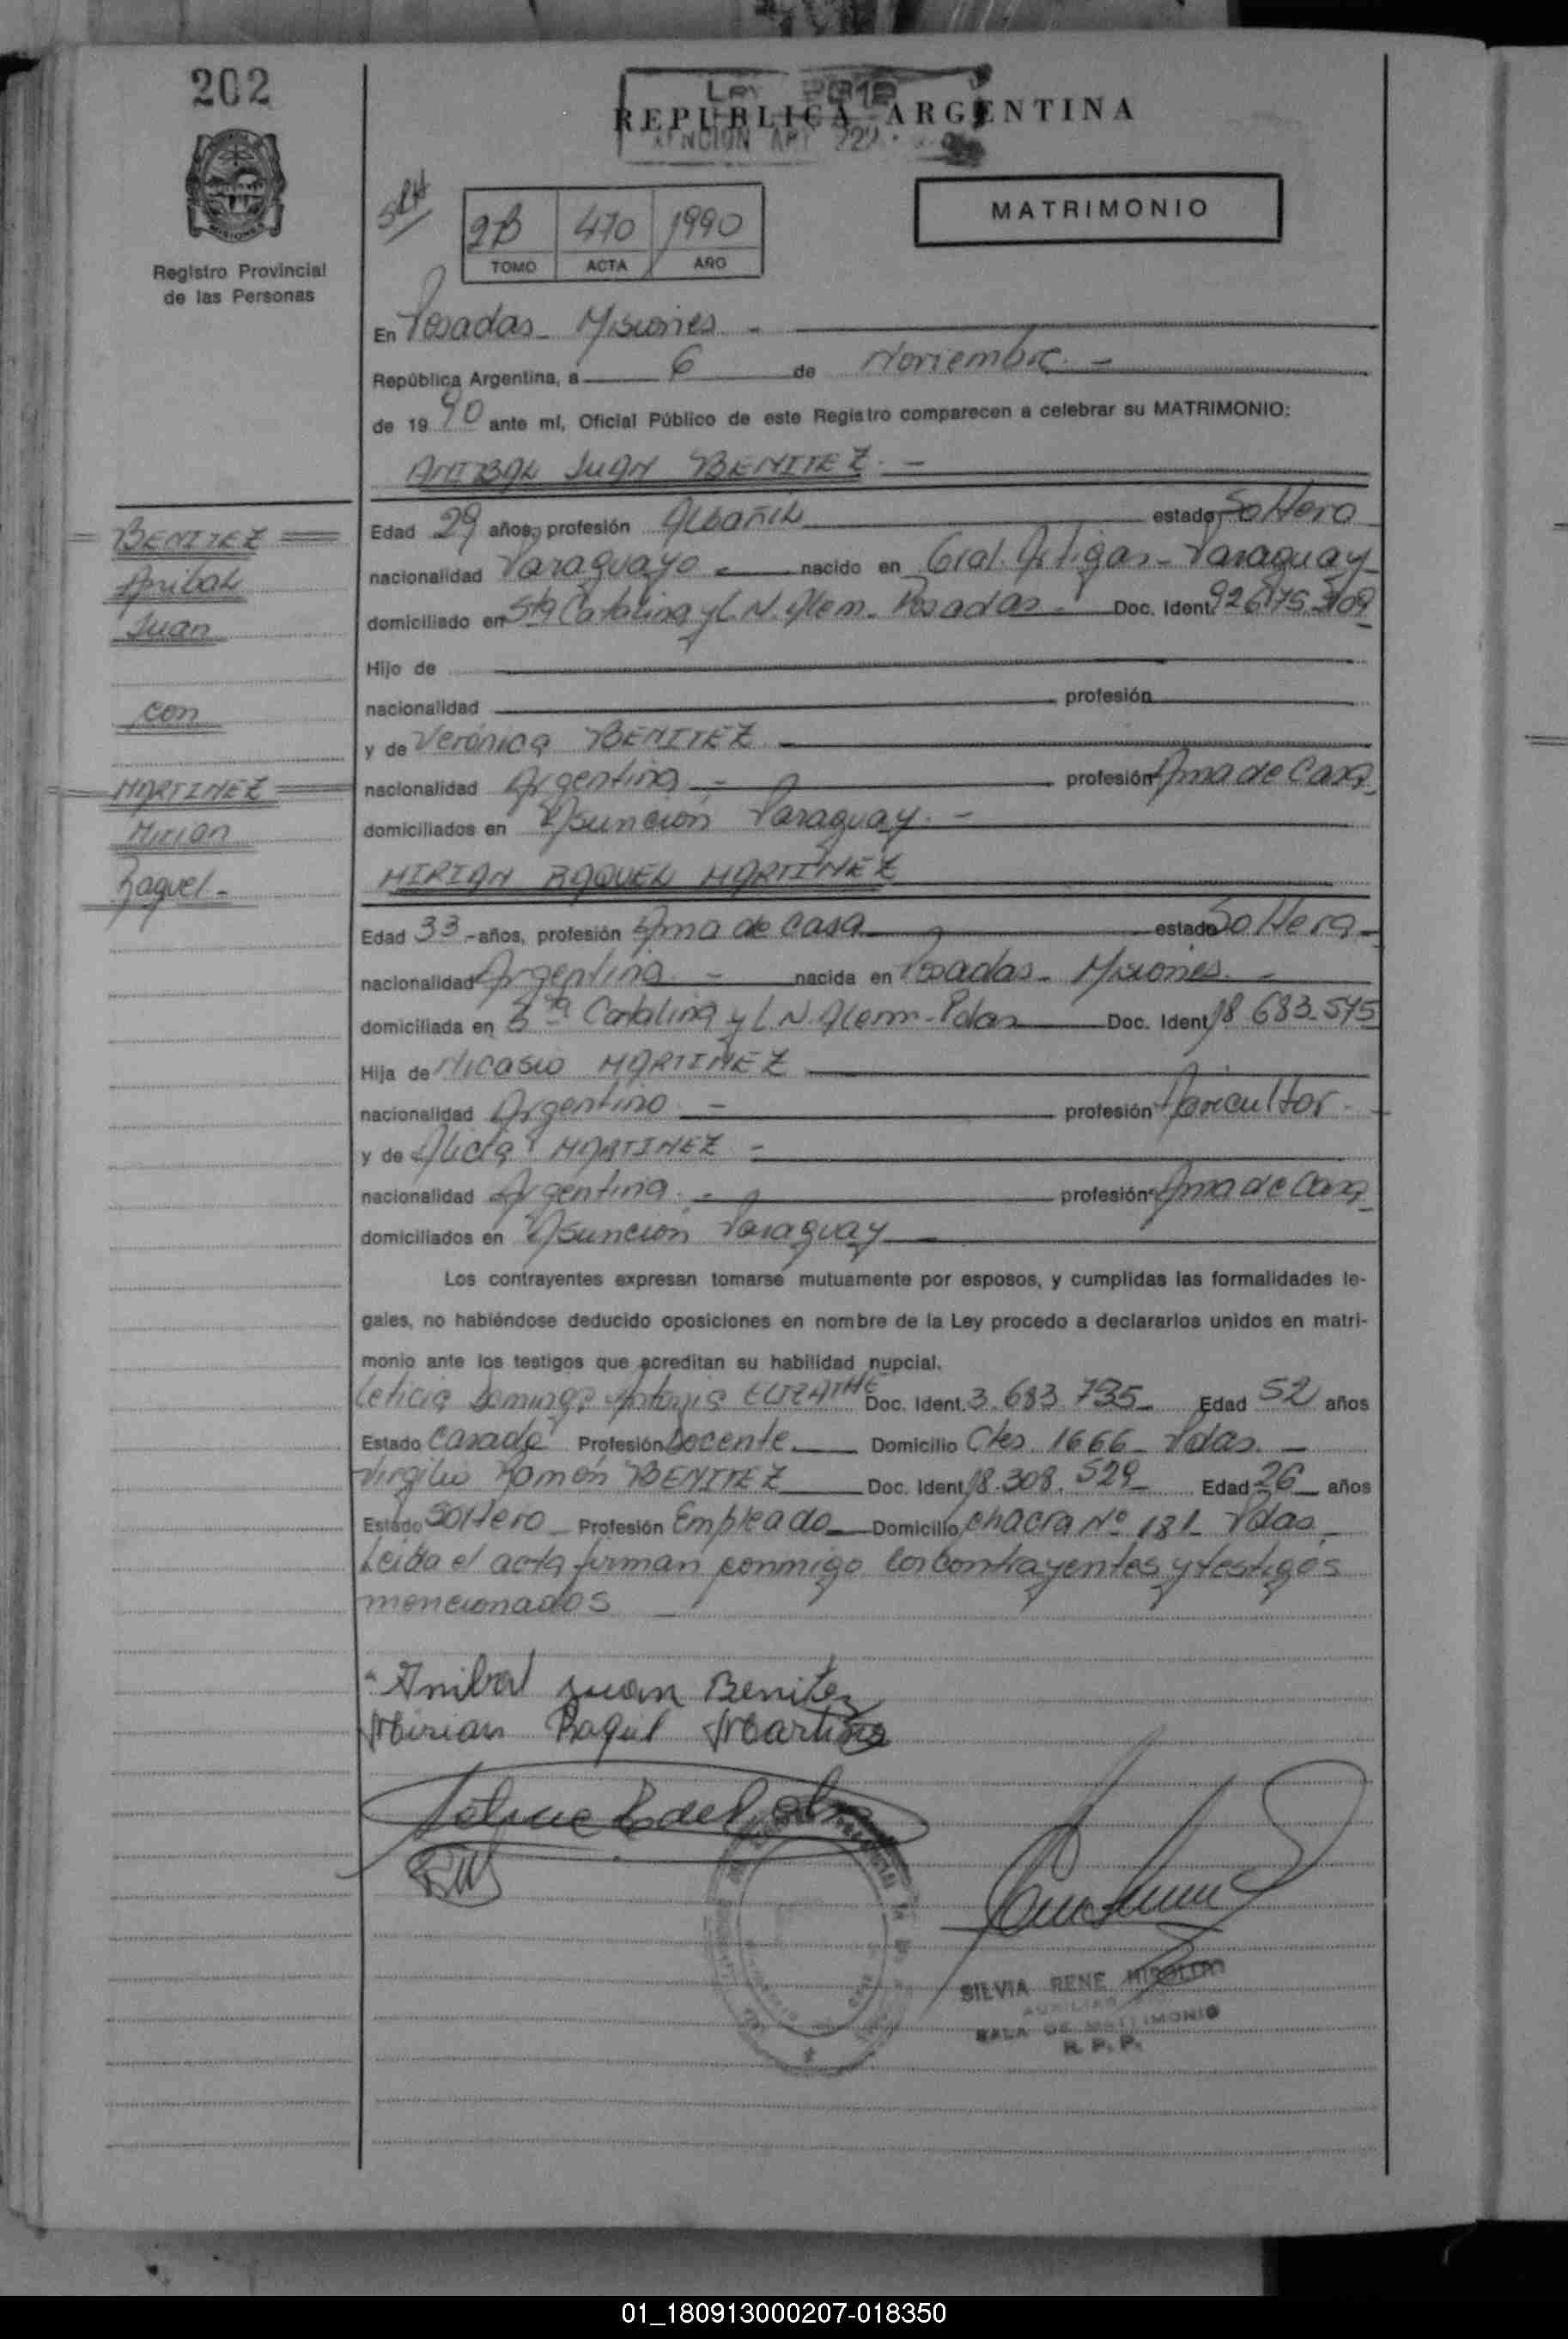 202
REPUBLICA ARGENTINA
MATRIMONIO
2B 470 1990
TOMO ACTA AÑO
Registro Provincial
de las Personas
En Posadas - Misiones -
República Argentina, a 6 de Noviembre -
de 1990 ante mí, Oficial Público de este Registro comparecen a celebrar su MATRIMONIO:
ANIBAL JUAN BENITEZ -
BENITEZ
Anibal
Juan
con
MARTINEZ
Mirian
Raquel -
Edad 29 años, profesión Albañil estado Soltero
nacionalidad Paraguayo - nacido en Gral. Artigas - Paraguay
domiciliado en Sta Catalina y L. N. Alem - Posadas - Doc. Ident.
Hijo de
nacionalidad profesión
y de Verónica BENITEZ
nacionalidad Argentina - profesión Ama de Casa
domiciliados en Asunción Paraguay. -
MIRIAN RAQUEL MARTINEZ
Edad 33 - años, profesión Ama de Casa estado Soltera -
nacionalidad Argentina - nacida en Posadas - Misiones. -
domiciliada en Sta Catalina y L. N. Alem - Pdas Doc. Ident. 18.683.575
Hija de Nicasio MARTINEZ
nacionalidad Argentino - profesión
y de Alicia MARTINEZ -
nacionalidad Argentina - profesión Ama de Casa
domiciliados en Asunción Paraguay
Los contrayentes expresan tomarse mutuamente por esposos, y cumplidas las formalidades le-
gales, no habiéndose deducido oposiciones en nombre de la Ley procedo a declararlos unidos en matri-
monio ante los testigos que acreditan su habilidad nupcial.
Leticia Doc. Ident. 3.683.735 Edad 52 años
Estado Casada Profesión Docente Domicilio Ctes 1666 - Pdas. -
Virgilio Ramón BENITEZ Doc. Ident. 18.308.529 Edad 26 años
Estado Soltero - Profesión Empleado Domicilio Chacra Nº 181 - Pdas.
Leida el acta firman conmigo los contrayentes y testigos
mencionados
Anibal Juan Benitez
Mirian Raquel Martinez
SILVIA RENE
AUXILIAR
SALA DE MATRIMONIO
R. P. P.
01_180913000207-018350